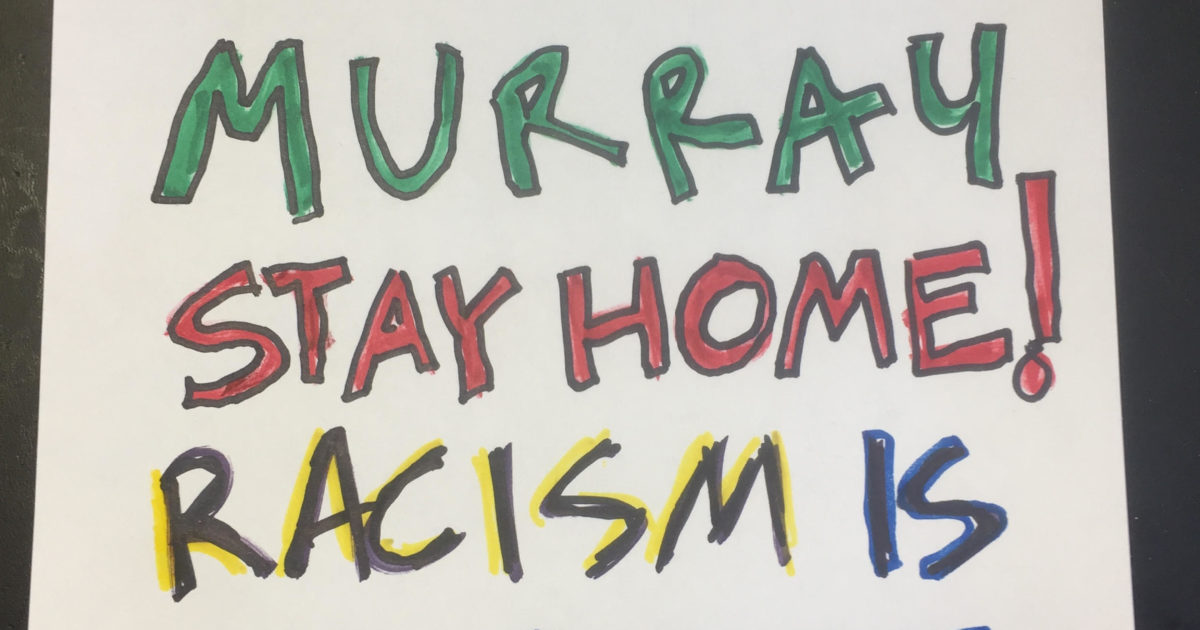 MURRAY
STAY HOME!
RACISM IS